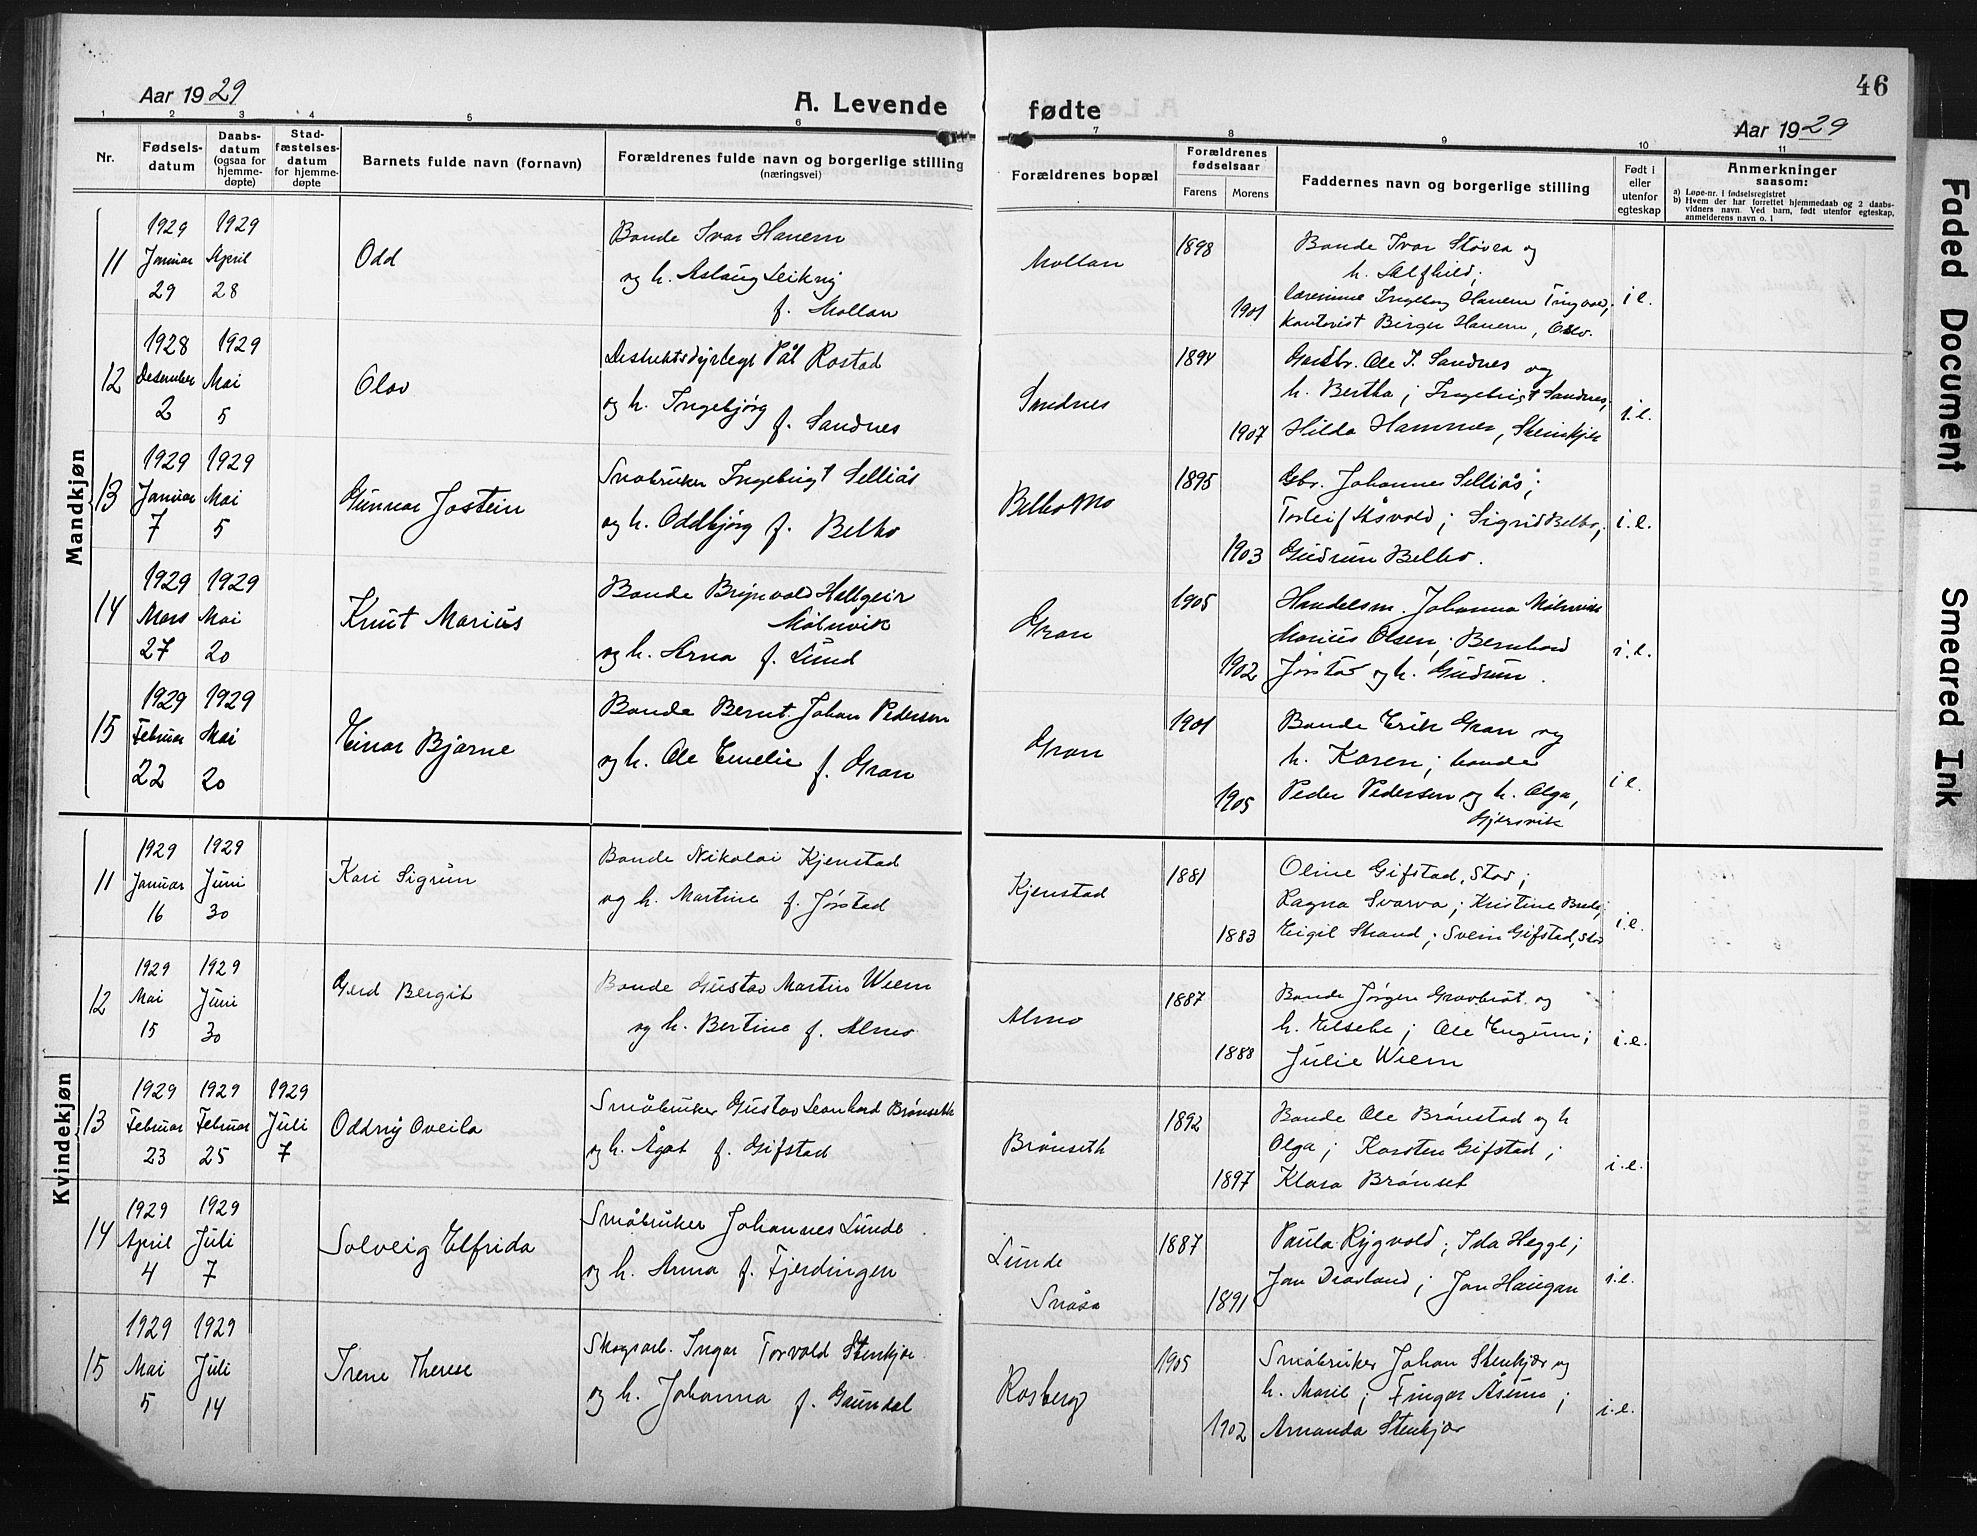 46
Aar 1929
A. Levende fødte
Aar 1929
1 2 3 4 5 6 7 8 9 10 11
Nr.
Fødsels-
datum
Daabs-
datum
(ogsaa for
hjemme-
døpte)
Stad-
fæstelses-
datum
for hjemme-
døpte
Barnets fulde navn (fornavn)
Forældrenes fulde navn og borgerlige stilling
(næringsvei)
Forældrenes bopæl
Forældrenes
fødselsaar
Farens
Morens
Faddernes navn og borgerlige stilling
Født i
eller
utenfor
egteskap
Anmerkninger
saasom:
a) Løpe-nr. i fødselsregistret
b) Hvem der har forrettet hjemmedaab og 2 daabs-
vidners navn. Ved barn, født utenfor egteskap,
anmelderens navn o. l
Mandkjøn
11
1929
Januar
29
1929
April
28
Odd
Bonde Ivar Hanem
og h. Aslaug Leikny
f. Mollan
Mollan
1898
1901
Bonde Ivar Støvra og
h. Alfhild;
lærerinne Ingeborg Hanem Tingvold,
Kontorist Birger Hanem, Oslo.
i e.
12
1928
Desember
2
1929
Mai
5
Olav
Distriktsdyrlege Pål Rostad
og h. Ingebjørg f. Sandnes
Sandnes
1894
1907
Gardbr. Ole I. Sandnes og
h. Bertha; Ingebrigt Sandnes,
Hilda Hammer, Steinkjer
i.e.
13
1929
Januar
7
1929
Mai
5
Gunnar Jostein
Småbruker Ingebrigt Selliås
og h. Oddbjørg f. Belbo
Belbo Mo
1895
1903
Gbr. Johannes Selliås;
Torleif Åsvold; Sigrid Belbo,
Gudrun Belbo.
i.e.
14
1929
Mars
27
1929
Mai
20
Knut Marius
Bonde Brynvold Hallgeir
Mølnvik
og h. Arna f. Lund
Gran
1905
1902
Handelsm. Johanna Mølnvik
Marius Olsen, Bernhard
Jørstad og h. Gudrun.
i.e.
15
1929
Februar
22
1929
Mai
20
Einar Bjarne
Bonde Bernt Johan Pedersen
og h. Ole Emelie f. Gran
Gran
1901
1905
Bonde Erik Gran og
h. Karen; bonde
Peder Pedersen og h. Olga,
Gjersvik
i e.
Kvindekjøn
11
1929
Januar
16
1929
Juni
30
Kari Sigrun
Bonde Nikolai Kjenstad
og h. Martine f. Jørstad
Kjenstad
1881
1883
Oline Gifstad, Stod;
Ragna Svarva; Kristine Brede;
Eigil Strand; Svein Gifstad, Stod
i.e.
12
1929
Mai
15
1929
Juni
30
Gerd Bergit
Bonde Gustav Martin Wiem
og h. Bertine f. Almo
Almo
1887
1888
Bonde Jørgen Gravbrøt og
h. Elsebe; Ole Engum;
Julie Wiem
i.e.
13
1929
Februar
23
1929
Februar
25
1929
Juli
7
Oddny Oveila
Småbruker Gustav Leonhard Brønseth
og h. Ågot f. Gifstad
Brønseth
1892
1897
Bonde Ole Brønstad og h
Olga; Karsten Gifstad;
Klara Brønset
i.e.
14
1929
April
4
1929
Juli
7
Solveig Elfrida
Småbruker Johannes Lunde
og h. Anna f. Fjerdingen
Lunde
Snåsa
1887
1891
Paula Rygvold; Ida Hegge;
Jon Dravland; Jon Haugan
i.e.
15
1929
Mai
5
1929
Juli
14
Irene Therese
Skogsarb. Ingar Torvald Stenkjær
og h. Johanna f. Gaundal
Rosberg
1905
1902
Småbruker Johan Stenkjær og
h. Marie; Fingar Åsum;
Amanda Stenkjær
i.e.
Faded Document
Smeared Ink